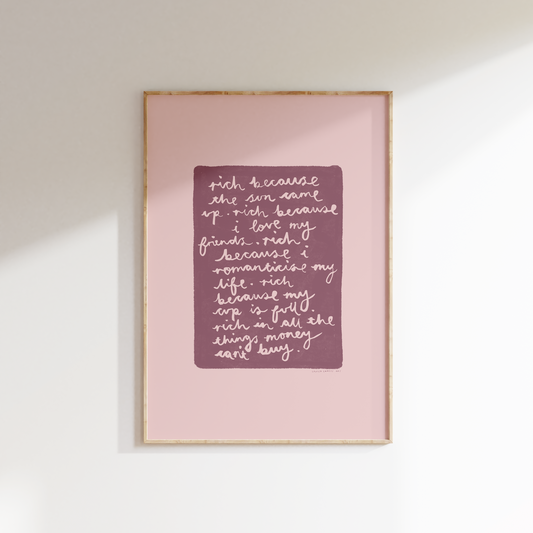 rich because
the sun came
up. rich because
i love my
friends. rich
because i
romanticise my
life. rich
because my
cup is full.
rich in all the
things money
can't buy.